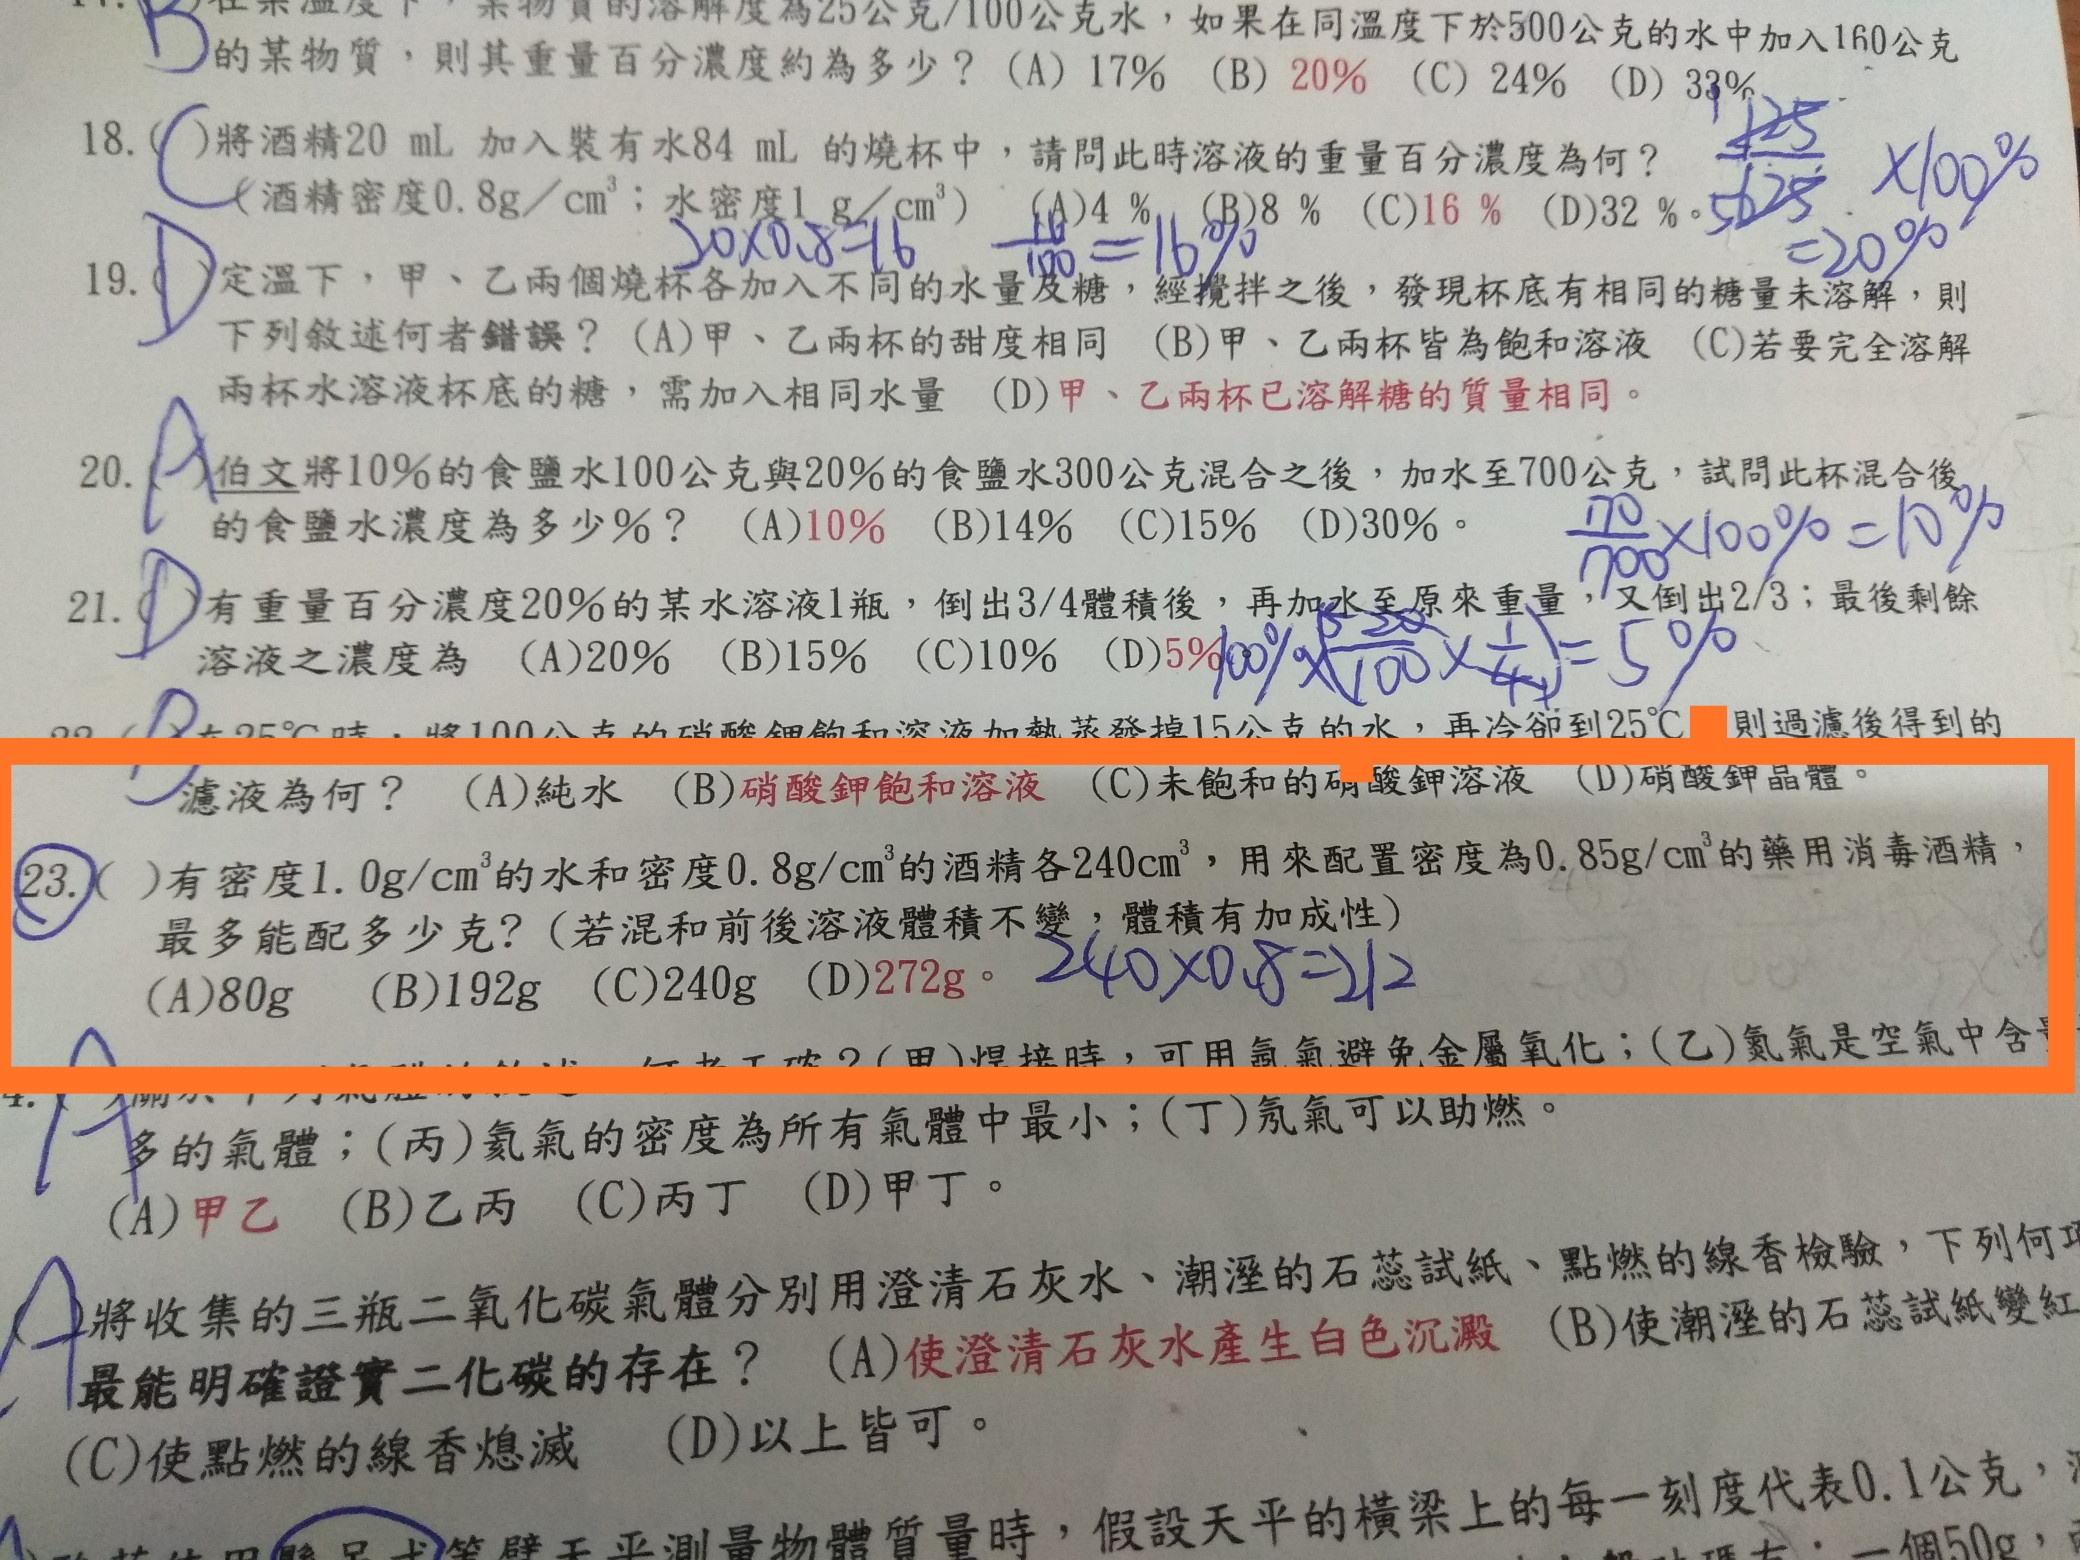 在某溫度下，某物質的溶解度為25公克/100公克水，如果在同溫度下於500公克的水中加入160公克
B
的某物質，則其重量百分濃度約為多少？ (A) 17% (B) 20% (C) 24% (D) 33%
18.( )將酒精20 mL 加入裝有水84 mL 的燒杯中，請問此時溶液的重量百分濃度為何？
C
(酒精密度0.8g／cm³；水密度1 g／cm³) (A)4 % (B)8 % (C)16 % (D)32 %。
125
×100%
=20%
20×0.8=16
16/100=16%
19.( )定溫下，甲、乙兩個燒杯各加入不同的水量及糖，經攪拌之後，發現杯底有相同的糖量未溶解，則
D
下列敘述何者錯誤？ (A)甲、乙兩杯的甜度相同 (B)甲、乙兩杯皆為飽和溶液 (C)若要完全溶解
兩杯水溶液杯底的糖，需加入相同水量 (D)甲、乙兩杯已溶解糖的質量相同。
20.( )伯文將10%的食鹽水100公克與20%的食鹽水300公克混合之後，加水至700公克，試問此杯混合後
A
的食鹽水濃度為多少%？ (A)10% (B)14% (C)15% (D)30%。
70/700×100%=10%
21.( )有重量百分濃度20%的某水溶液1瓶，倒出3/4體積後，再加水至原來重量，又倒出2/3；最後剩餘
D
溶液之濃度為 (A)20% (B)15% (C)10% (D)5%
100%×(20/100×1/4)=5%
22.( )在25℃時，將100公克的硝酸鉀飽和溶液加熱蒸發掉15公克的水，再冷卻到25℃ 則過濾後得到的
B
濾液為何？ (A)純水 (B)硝酸鉀飽和溶液 (C)未飽和的硝酸鉀溶液 (D)硝酸鉀晶體。
23.( )有密度1.0g/cm³的水和密度0.8g/cm³的酒精各240cm³，用來配置密度為0.85g/cm³的藥用消毒酒精，
最多能配多少克?(若混和前後溶液體積不變，體積有加成性)
(A)80g (B)192g (C)240g (D)272g。
240×0.8=212
4.( )關於下列氣體的敘述，何者正確？(甲)焊接時，可用氬氣避免金屬氧化；(乙)氮氣是空氣中含量
A
多的氣體；(丙)氦氣的密度為所有氣體中最小；(丁)氖氣可以助燃。
(A)甲乙 (B)乙丙 (C)丙丁 (D)甲丁。
A
( )將收集的三瓶二氧化碳氣體分別用澄清石灰水、潮溼的石蕊試紙、點燃的線香檢驗，下列何項
最能明確證實二化碳的存在？ (A)使澄清石灰水產生白色沉澱 (B)使潮溼的石蕊試紙變紅
(C)使點燃的線香熄滅 (D)以上皆可。
等臂天平測量物體質量時，假設天平的橫梁上的每一刻度代表0.1公克，
一個50g，